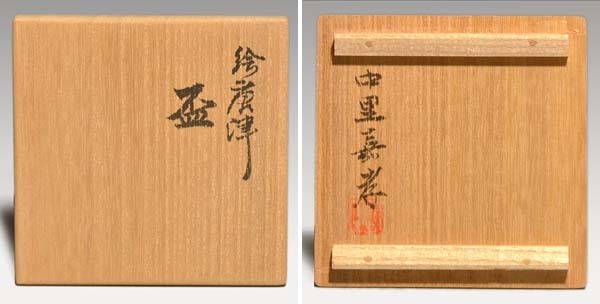 絵唐津
盃
中里嘉孝